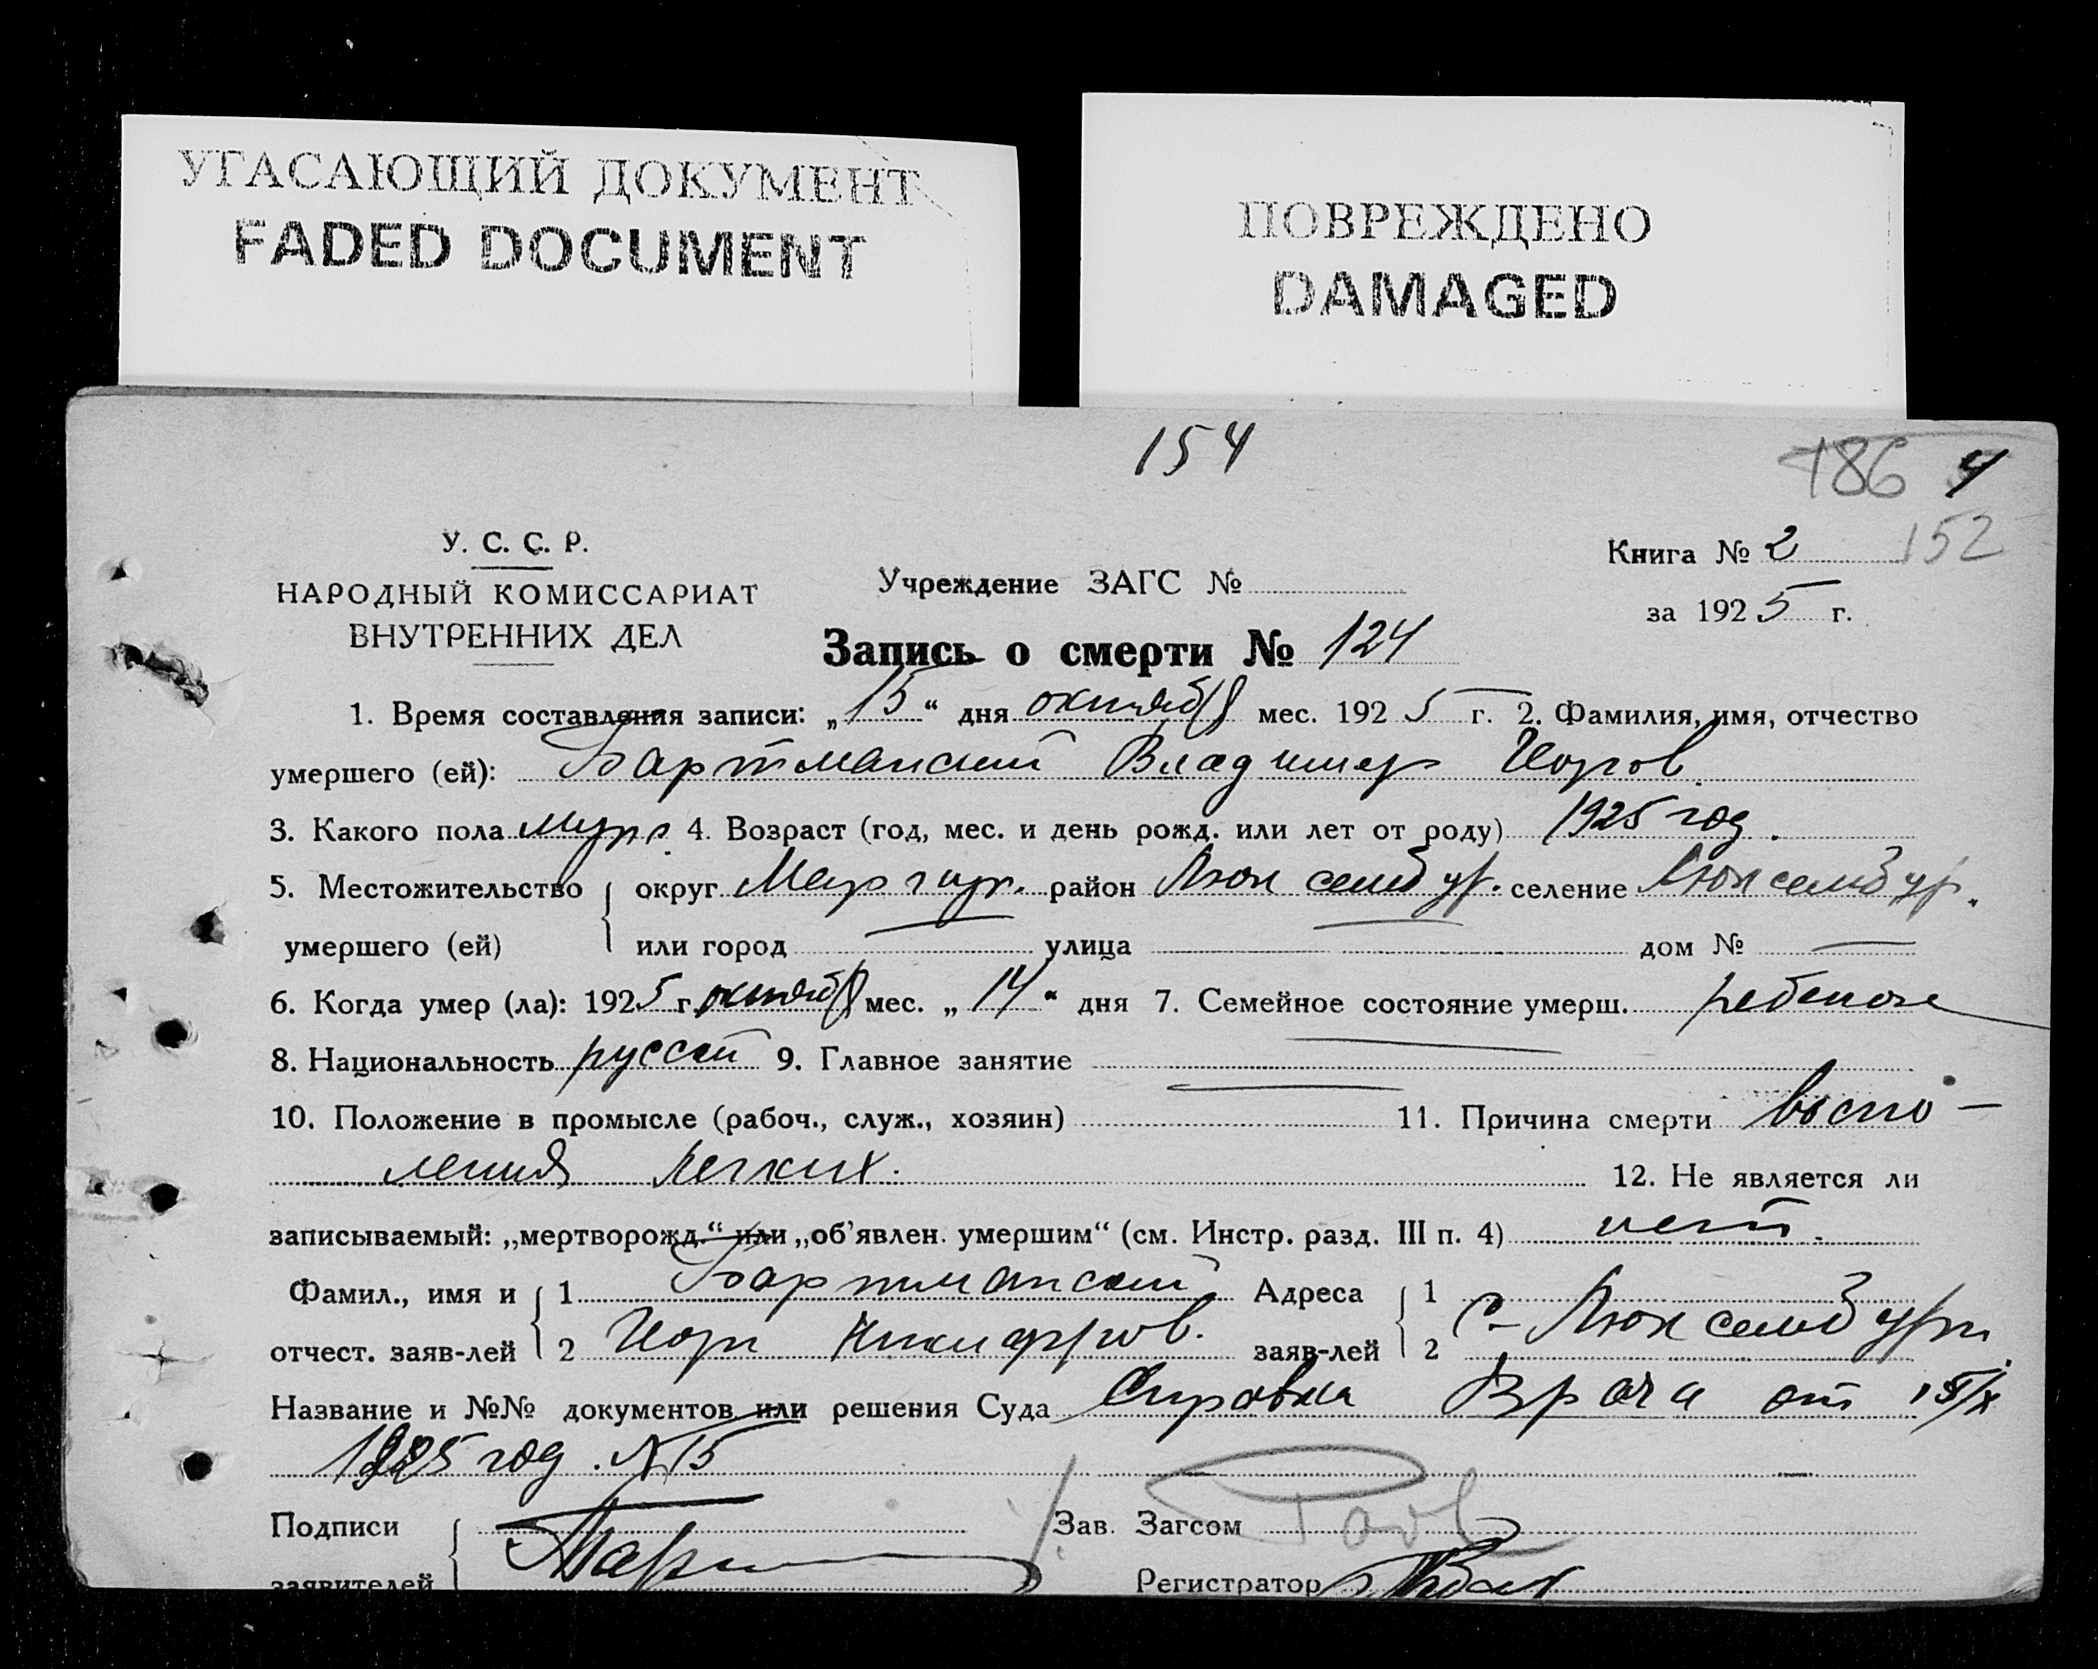 УГАСАЮЩИЙ ДОКУМЕНТ
FADED DOCUMENT
ПОВРЕЖДЕНО
DAMAGED
154
186 4
152
У. С. С. Р.
НАРОДНЫЙ КОМИССАРИАТ
ВНУТРЕННИХ ДЕЛ
Учреждение ЗАГС №
Книга № 2
за 1925 г.
Запись о смерти № 124
1. Время составления записи: „15“ дня октября мес. 1925 г. 2. Фамилия, имя, отчество
умершего (ей): Бартманский Владимир Игоров.
3. Какого пола муж. 4. Возраст (год, мес. и день рожд. или лет от роду) 1925 год.
5. Местожительство округ Мариуп. район Люксембур. селение Люксембур.
умершего (ей) или город — улица — дом № —
6. Когда умер (ла): 1925 г. октября мес. „14“ дня 7. Семейное состояние умерш. ребенок
8. Национальность русский 9. Главное занятие —
10. Положение в промысле (рабоч., служ., хозяин) — 11. Причина смерти воспо-
ления легких. 12. Не является ли
записываемый: „мертворожд.“ или „об'явлен. умершим“ (см. Инстр. разд. III п. 4) нет.
Фамил., имя и 1 Бартманский Адреса 1
отчест. заяв-лей 2 Игор Никифоров. заяв-лей 2 С- Люксембург.
Название и №№ документов или решения Суда Справка Врача от 15/X
1925 год. № 15
Подписи
заявителей
Зав. Загсом
Регистратор